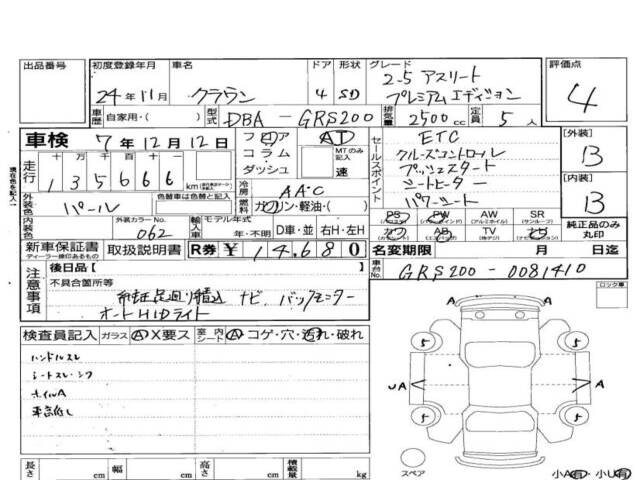 出品番号 初度登録年月 車名 ドア 形状 グレード 評価点
24年11月 クラウン 4 SD 2.5 アスリート
プレミアムエディション 4
車歴 自家用・( ) 型式 DBA-GRS200 排気量 2500cc 定員 5人
車検 7年12月12日 フロア AT セールスポイント ETC [外装]
走行 十万 千百十一 コラム MTのみ記入 クルーズコントロール B
135666 km ダッシュ 速 プッシュスタート
外装色 パール 色替車は色替と記入 冷房 AAC シートヒーター [内装]
内装色 外装カラーNo. 062 輸入車 モデル年式 年・不明 燃料 ガソリン・軽油・( ) パワーシート B
D車・並 右H・左H PS PW AW SR
カワ AB TV ナビ 純正品のみ丸印
新車保証書 取扱説明書 R券 ¥14,680 名変期限 月 日迄
ディーラー捺印あるもの
注意事項 後日品【 】 車台No. GRS200-0081410
不具合箇所等 ロック車
ナビ バックモニター
オートHIDライト
検査員記入 ガラス A X要ス 室内シート A コゲ・穴・汚れ・破れ
ハンドルスレ
シートスレ・シワ
ホイルA
5 5
UA A A
5 5
スペア 小A有・小U有
長さ cm 幅 cm 高さ cm 積載量 kg
現在色を記入